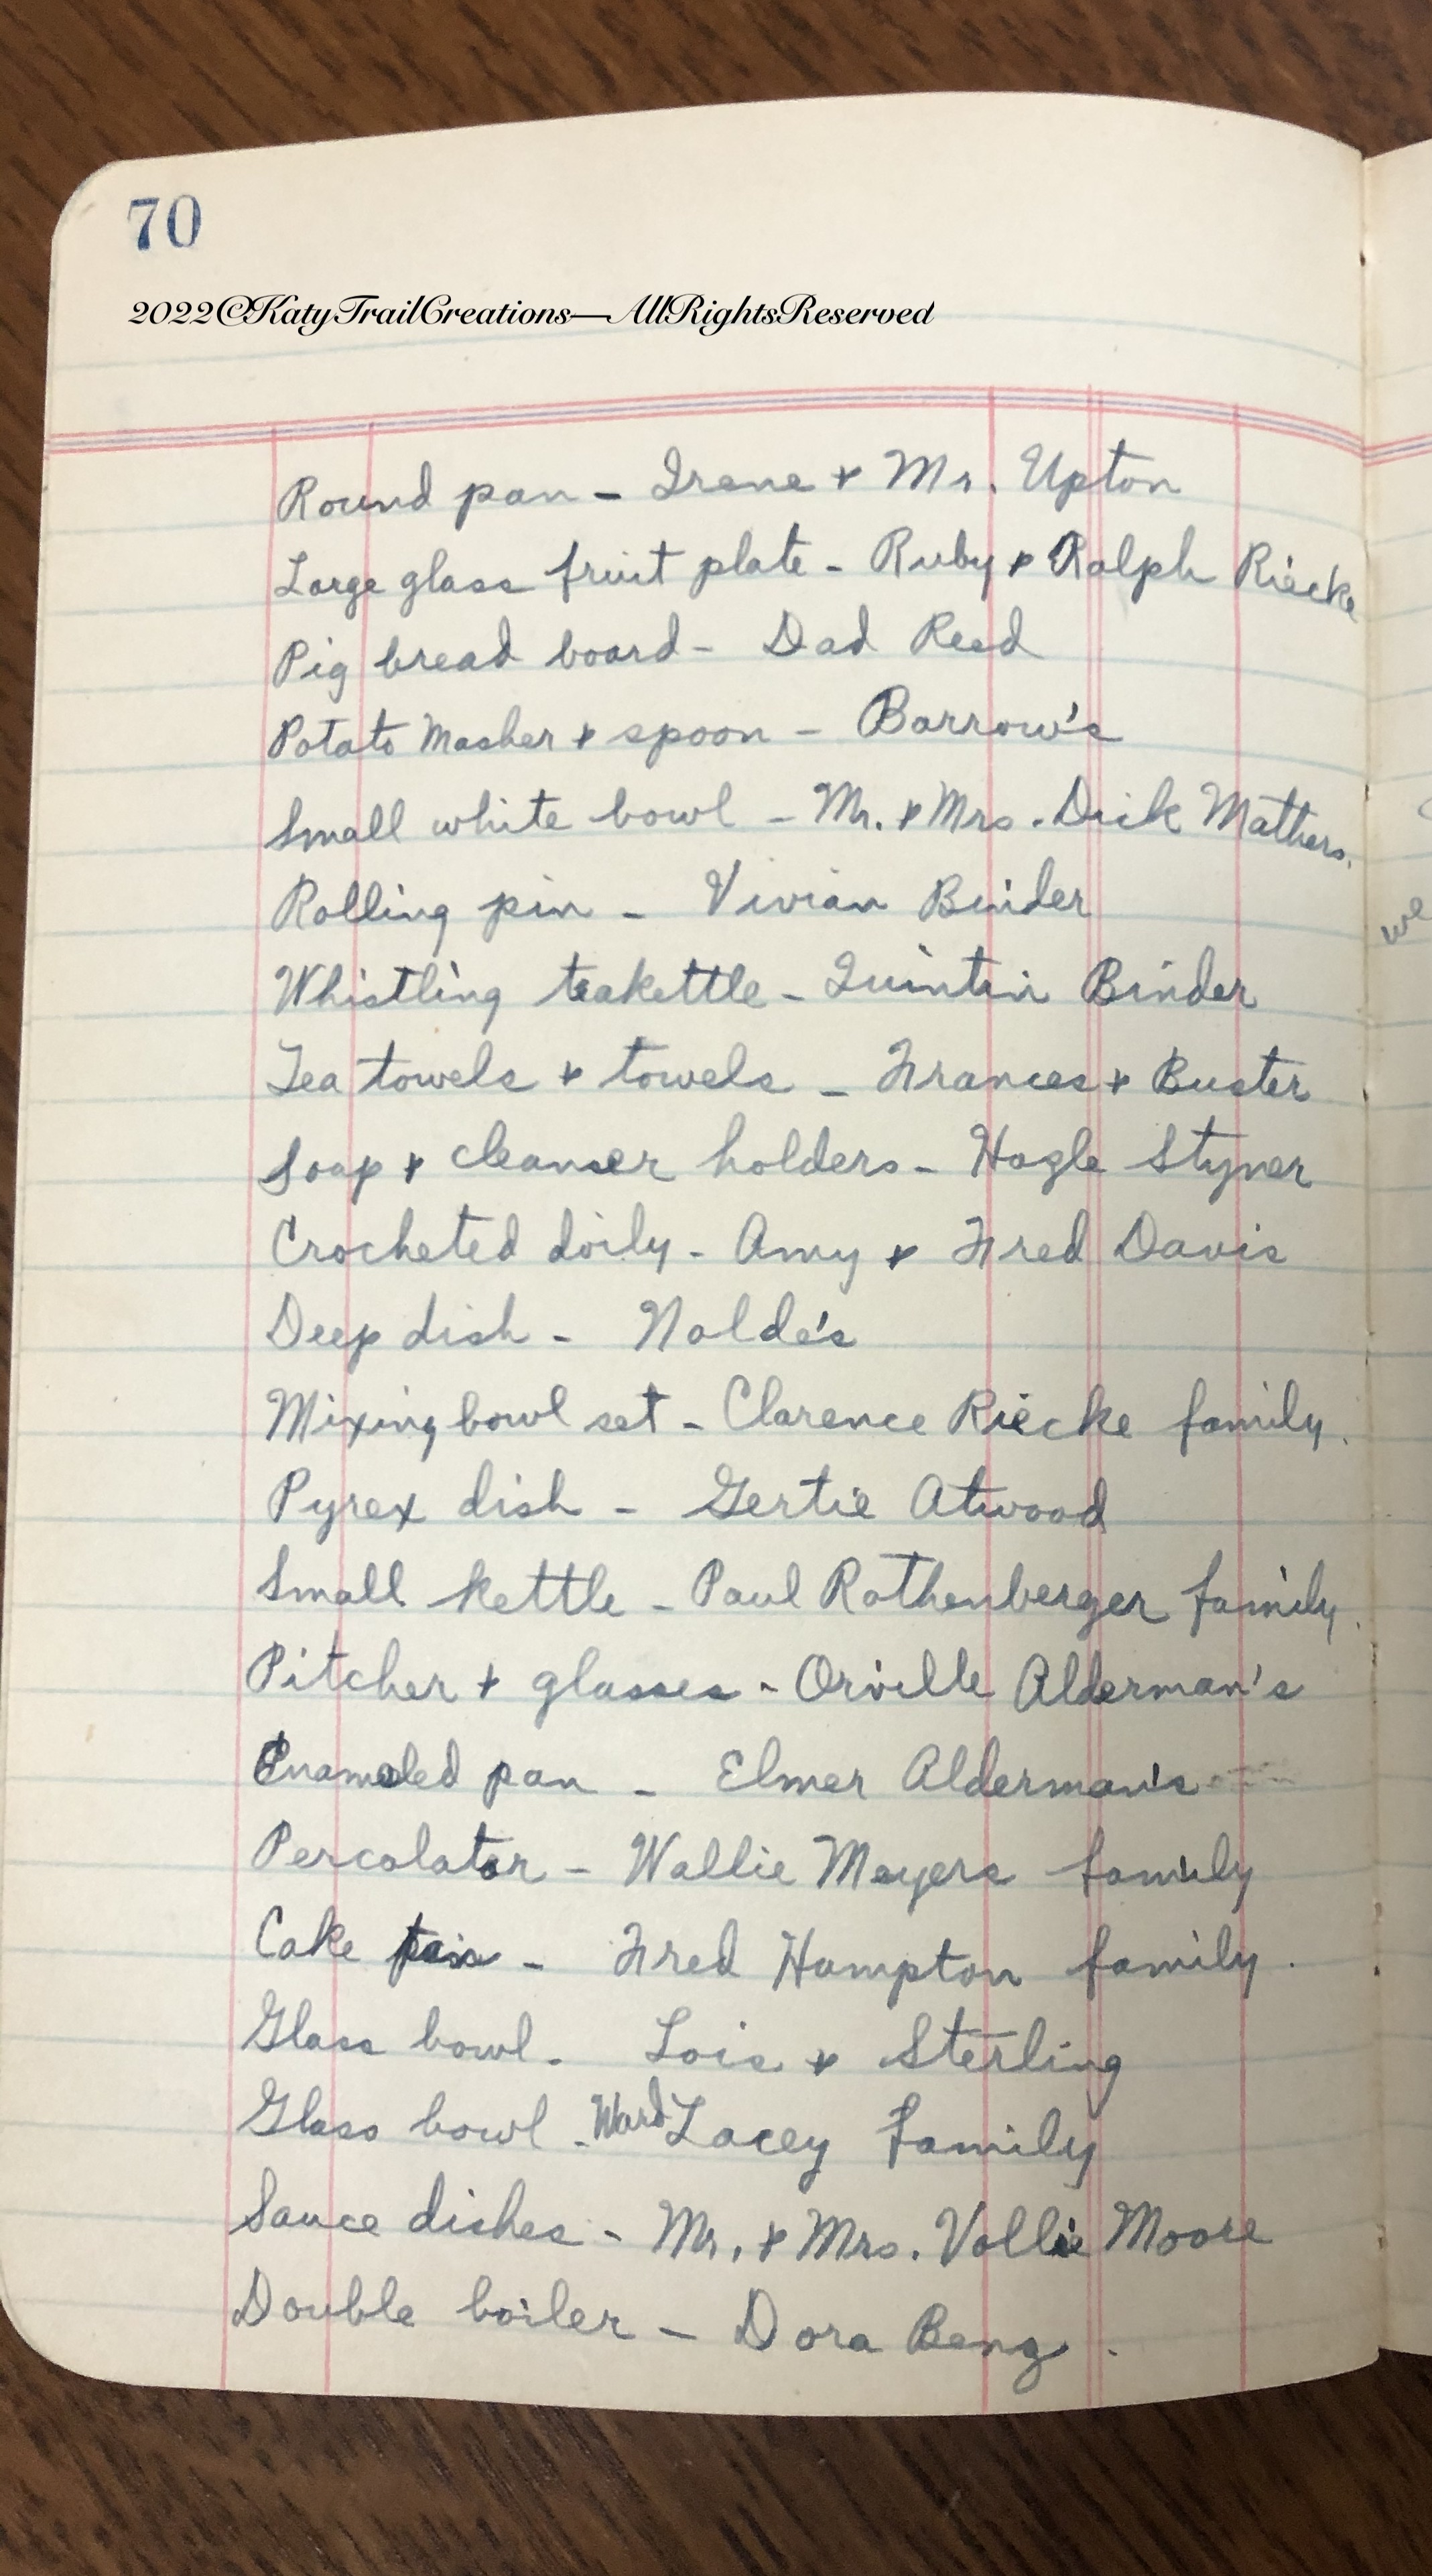 70
2022©KatyTrailCreations—AllRightsReserved
Round pan - Irene + Mr. Upton
Large glass fruit plate - Ruby + Ralph Riecke
Pig bread board - Dad Reed
Potato Masher + spoon - Barrow's
Small white bowl - Mr. + Mrs. Dick Mathers.
Rolling pin - Vivian Binder
we
Whistling teakettle - Quintin Binder
Tea towels + towels - Frances + Buster
Soap + cleanser holders - Hogle Styner
Crocheted doily - Amy + Fred Davis
Deep dish - Nolde's
Mixing bowl set - Clarence Riecke family.
Pyrex dish - Gertie Atwood
Small kettle - Paul Rothenberger family.
Pitcher + glasses - Orville Alderman's
Enameled pan - Elmer Alderman's
Percolator - Wallie Meyers family
Cake pan - Fred Hampton family.
Glass bowl - Lois + Sterling
Glass bowl - Ward Lacey Family
Sauce dishes - Mr. + Mrs. Vollie Moore
Double boiler - Dora Beng.